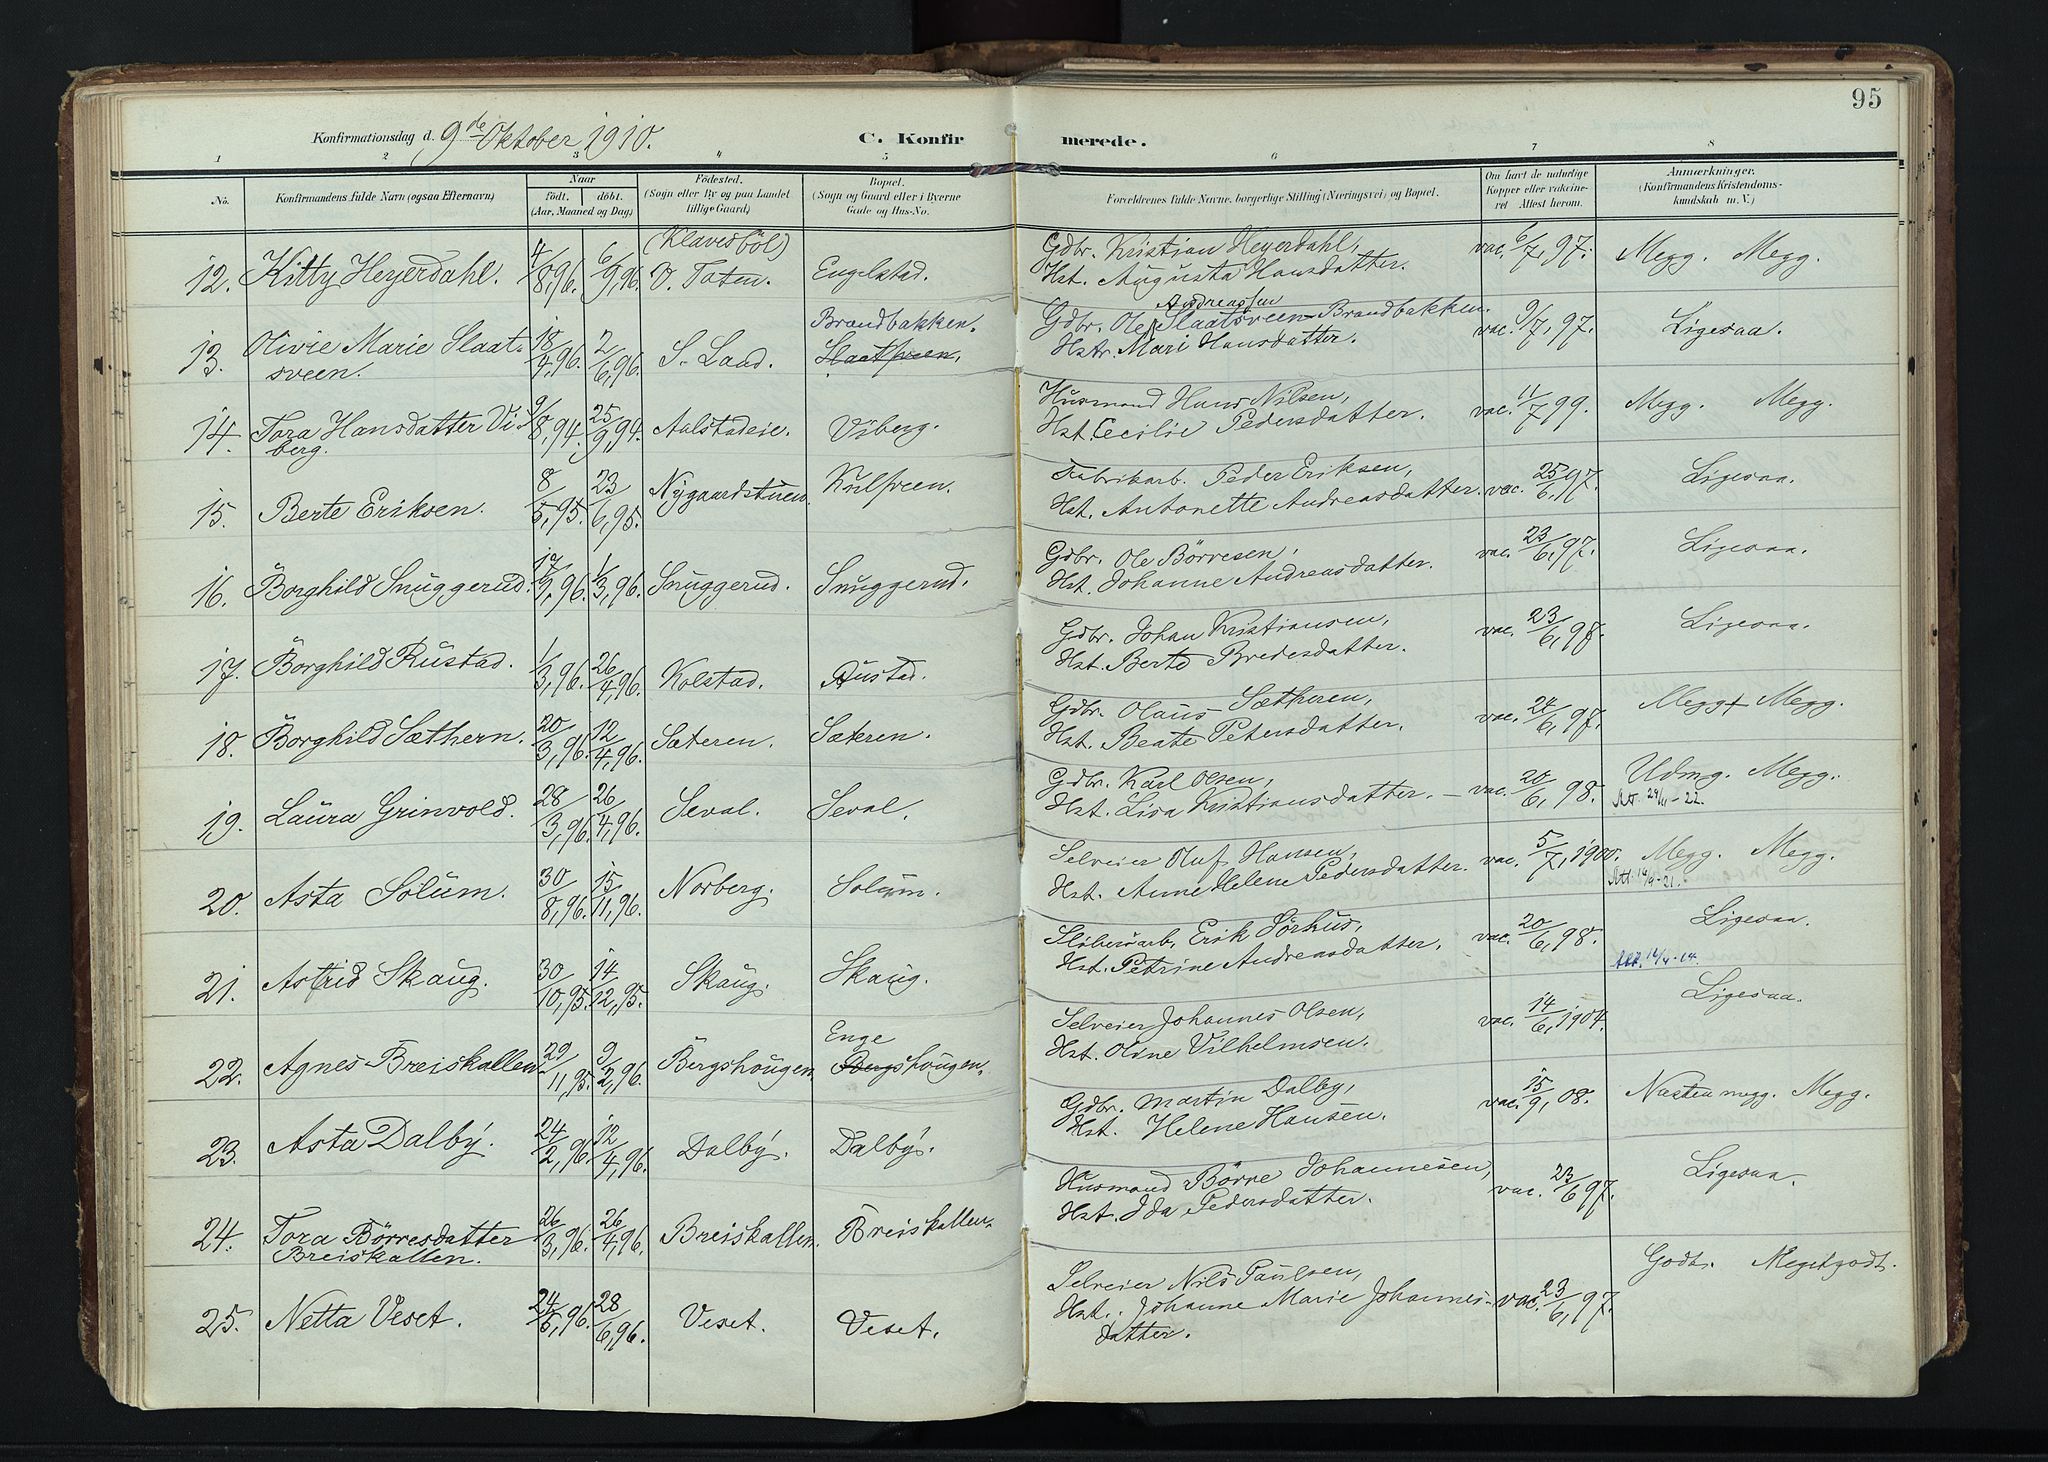 95
Konfirmationsdag d. 9de Oktober 1910.
C. Konfir merede.
1 2 3 4 5 6 7 8
No.
Konfirmandens fulde Navn (ogsaa Efternavn)
Naar
født. døbt.
(Aar, Maaned og Dag)
Fødested.
(Sogn eller By og paa Landet
tillige Gaard)
Bopæl.
(Sogn og Gaard eller i Byerne
Gade og Hus-No.
Forældrenes fulde Navne, borgerlige Stilling (Næringsvei) og Bopæl.
Om havt de naturlige
Kopper eller vaccine-
ret Attest herom.
Anmærkninger.
(Konfirmandens Kristendoms-
kundskab m. V.)
(Klavesböl)
12. Kitty Heyerdahl. 4/8,96. 6/9,96. V. Toten. Engelstad.
Gdbr. Kristian Heyerdahl,
Hst. Augusta Hansdatter. vac. 6/7,97. Megg. Megg.
Brandbakken.
13. Olivie Marie Slaat-
sveen. 18/4,96. 2/6,96. S. Land. Slaatsveen.
Andreassen
Gdbr. Ole Slaatsveen Brandbakken.
Hstr. Mari Hansdatter. vac. 9/7,97. Ligesaa.
14. Tora Hansdatter Vi-
berg. 9/8,94. 25/9,94. Aalstadeie. Viberg.
Husmand Hans Nilsen,
Hst. Cecilie Pedersdatter. vac. 11/7,99. Megg. Megg.
15. Berte Eriksen. 8/5,95. 23/6,95. Nygaardstuen. Kulsveen.
Fabrikarb. Peder Eriksen,
Hst. Antonette Andreasdatter. vac. 25/6,97. Ligesaa.
16. Borghild Snuggerud. 17/1,96. 1/3,96. Snuggerud. Snuggerud.
Gdbr. Ole Börresen,
Hst. Johanne Andreasdatter. vac. 23/6,97. Ligesaa.
17. Borghild Rustad. 1/3,96. 26/4,96. Kolstad. Rustad.
Gdbr. Johan Kristiansen,
Hst. Berte Bredesdatter. vac. 23/6,98. Ligesaa.
18. Borghild Sæthern. 20/3,96. 12/4,96. Sæteren. Sæteren.
Gdbr. Olaus Sætheren,
Hst. Beate Petersdatter. vac. 24/6,97. Megg Megg.
19. Laura Grinvold. 28/3,96. 26/4,96. Seval. Seval.
Gdbr. Karl Olsen,
Hst. Lisa Kristiansdatter. vac. 20/6,98. Udmg. Megg.
Att. 29/11-22.
20. Asta Solum. 30/8,96. 15/11,96. Norberg. Solum.
Selveier Oluf Hansen,
Hst. Anne Helene Pedersdatter. vac. 5/7,1900. Megg. Megg.
Att. 14/9-21.
21. Astrid Skaug. 30/10,95. 14/12,95. Skaug. Skaug.
Sliberiarb. Erik Sörhus,
Hst. Petrine Andreasdatter. vac. 20/6,98. Ligesaa.
Att. 14/4-14.
Enge
22. Agnes Breiskallen 29/11,95. 9/2,96. Bergshougen. Bergshougen.
Selveier Johannes Olsen,
Hst. Oline Vilhelmsen. vac. 14/6,1904. Ligesaa.
23. Asta Dalby. 24/2,96. 12/4,96. Dalby. Dalby.
Gdbr. Martin Dalby,
Hst. Helene Hansen. vac. 15/9,08. Næsten megg. Megg.
24. Tora Börresdatter
Breiskallen. 26/3,96. 26/4,96. Breiskallen. Breiskallen.
Husmand Börre Johannesen,
Hst. Ida Pedersdatter. vac. 23/6,97. Ligesaa.
25. Netta Veset. 24/5,96. 28/6,96. Veset. Veset.
Selveier Nils Paulsen,
Hst. Johanne Marie Johannes-
datter. vac. 23/6,97. Godt. Megetgodt.